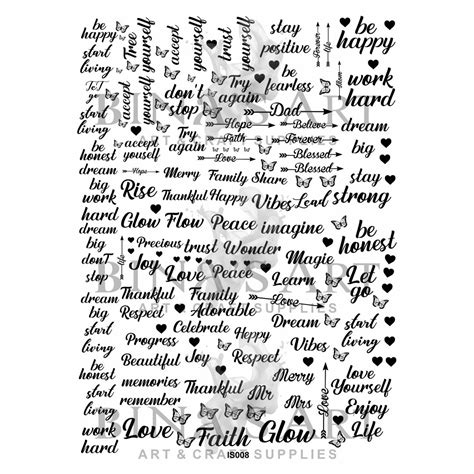 be
happy
start
living
Free
yourself
accept
yourself
trust
yourself
stay
positive
Forever
life
be
happy
ToT
go
start
living
accept
yourself
don't
stop
Try
again
be
fearless
Mom
work
hard
Dad
Hope
Believe
dream
Try
again
Faith
Forever
be
honest
accept
yourself
Love
Blessed
big
dream
Hope
Merry
Family
Share
Blessed
stay
strong
big
work
hard
Rise
Thankful
Happy
Vibes
Lead
dream
Glow
Flow
Peace
imagine
be
honest
big
life
Precious
trust
Wonder
don't
stop
Joy
Love
Peace
Magic
Learn
Let
go
dream
Thankful
Family
Love
big
Respect
Adorable
start
living
Progress
Celebrate
Heppy
Dream
start
living
Vibes
be
honest
Beautiful
Joy
Respect
love
Yourself
dream
memories
Thankful
Merry
life
big
remember
Mr
Mrs
Enjoy
Life
work
hard
Love
Faith
Glow
BINA'S ART
ART & CRAFT SUPPLIES
BINA'S ART
ART & CRAFT SUPPLIES
BINA'S ART
ART & CRAFT SUPPLIES
IS008